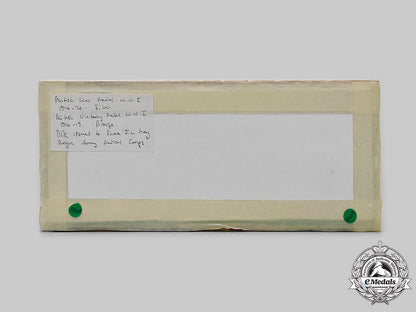 British War Medal W.W.I
1914-20 - S.W.
British Victory Medal W.W.I
1914-19. Bronze.
Both issued to Private J.L. May
Royal Army Medical Corps
eMedals